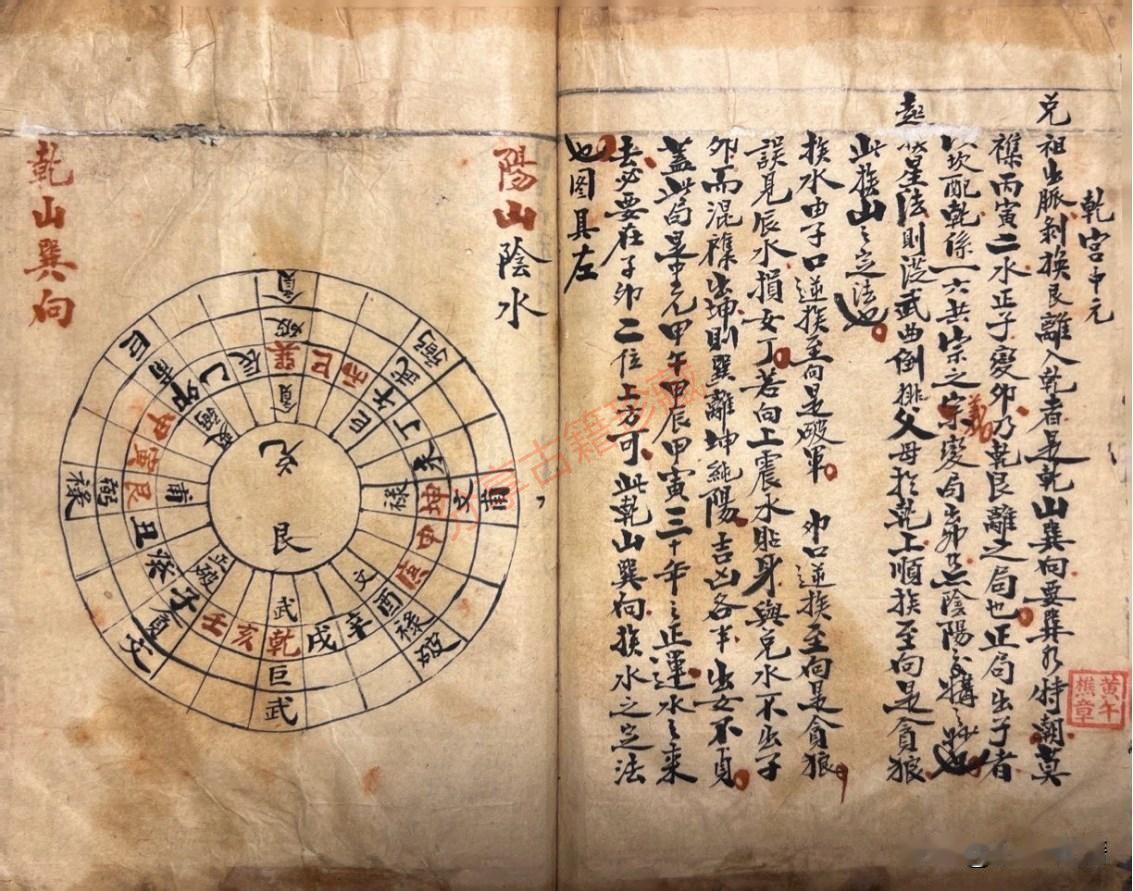 乾宮中元
兌祖出脈剝換艮離入乾者是乾山巽向要巽水特朝莫
襍丙寅二水正子變卯乃乾艮離之局也正局出于者
以坎配乾係一六共宗之宗變局卯陰陽交媾之妙也
義
起星法則從武曲倒排父母於乾上順挨至向是貪狼
此挨山之定法也
挨水由子口逆挨至向是破軍 卯口逆挨至向是貪狼
誤見辰水損女丁若向上震水貼身與兌水不出子
卯而混襍出坤則巽離坤純陽吉凶各半出女不貞
蓋此局是中元甲午甲辰甲寅三十年之正運水之來
去必要在子卯二位上方可此乾山巽向挨水之定法
也圖具左
黄午樵章
陽山陰水
乾山巽向
兌
艮
貪
破
巽
貪
巳
丙
午
丁
未
坤
申
庚
酉
辛
戌
乾
亥
壬
子
癸
丑
艮
寅
甲
卯
乙
辰
弼
武
巨
禄
文
輔
文
禄
破
武
巨
武
破
貪
文
輔
弼
禄
巨
輔
古籍珍藏